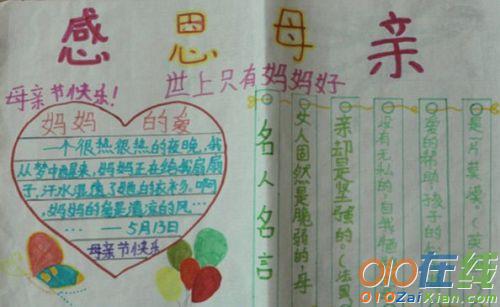 感恩母亲
母亲节快乐!
世上只有妈妈好
妈妈 的爱
一个很热很热的夜晚,我
从梦中醒来,妈妈正在给我扇扇
子,汗水湿透了她的衣衫。啊,
妈妈的爱是清凉的风……
——5月13日
母亲节快乐
名人名言
女人固然是脆弱的,母
亲却是坚强的。(法国
没有无私的,自我牺
爱的帮助,孩子的
是一片荒漠。(英
010在线
010ZaiXian.com